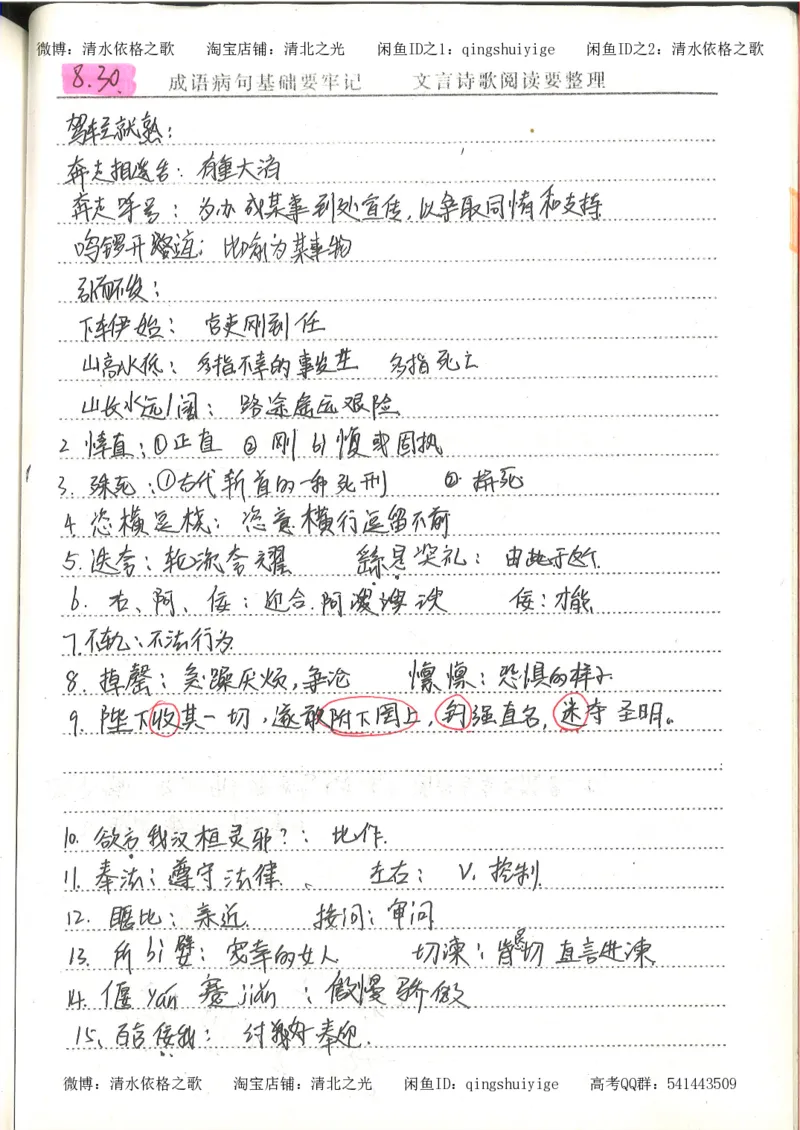 微博：清水依格之歌 淘宝店铺：清北之光 闲鱼ID之1：qingshuiyige 闲鱼ID之2：清水依格之歌
8.30. 成语病句基础要牢记 文言诗歌阅读要整理
驾轻就熟：
奔走相告：有重大消
奔走呼号：为办成某事到处宣传，以争取同情和支持
鸣锣开道：比喻为某事物
引而不发：
下车伊始：官吏刚到任
山高水低：多指不幸的事发生 多指死亡
山长水远/阔：路途遥远艰险
2 悻直：①正直 ② 刚bì愎或固执
3. 殊死：①古代斩首的一种死刑 ② 拼死
4. 恣横足栈：恣意横行逗留不前
5. 迭夸：轮流夸耀 繇是 礼：由此于这个
6. 右、阿、佞：迎合.阿 谀 佞：才能
7. 不轨：不法行为
8. 掉罄：急躁厌烦，争论 懔懔：恐惧的样子
9. 陛下收其一切，遂敢附下罔上，钓强直名，迷夺圣明。
10. 欲方我汉桓灵邪？：比作.
11. 奉法：遵守法律、 左右：V. 控制
12. 暱比：亲近. 按问：审问
13. 所bì嬖：宠幸的女人 切谏：恳切直言进谏
14. 偃yǎn蹇jiǎn：傲慢骄傲
15、百官佞我：讨我好奉迎.
微博：清水依格之歌 淘宝店铺：清北之光 闲鱼ID：qingshuiyige 高考QQ群：541443509